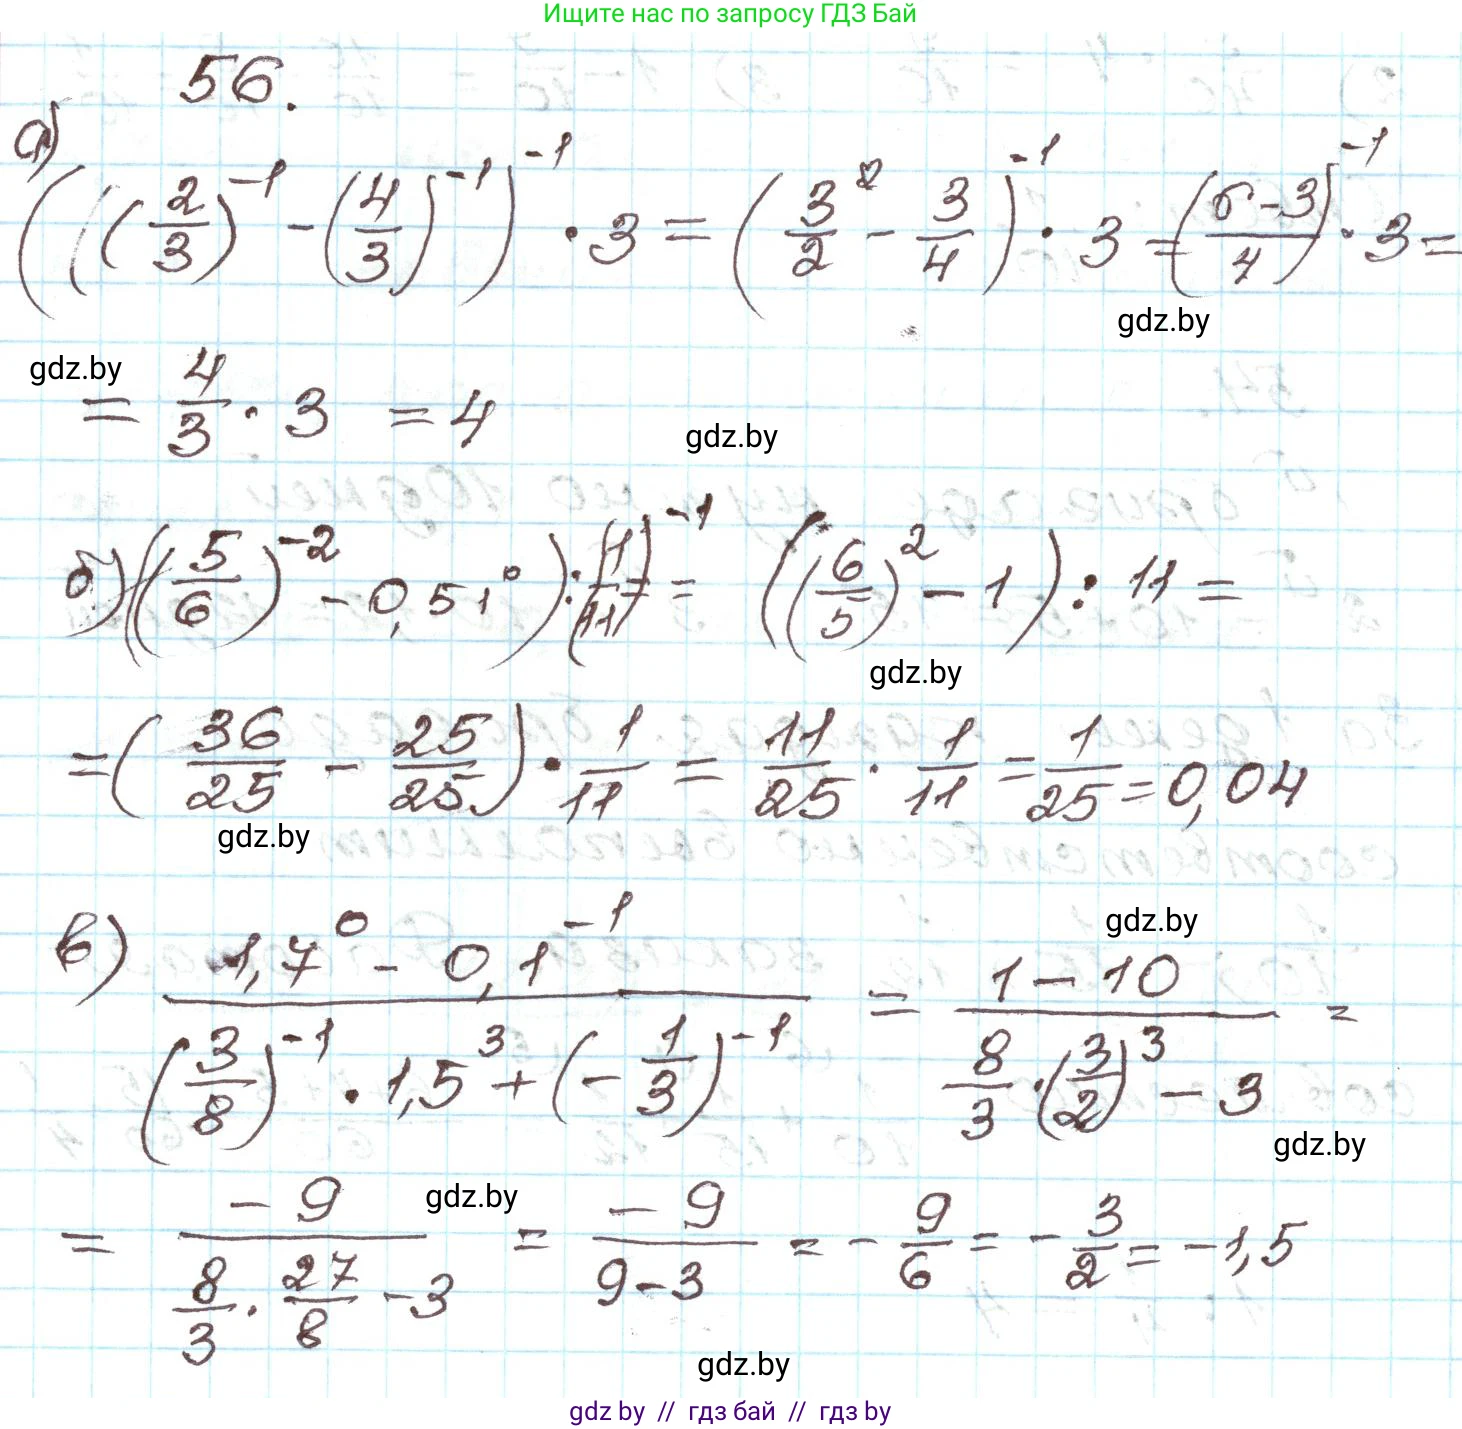 Ищите нас по запросу ГДЗ Бай
56.
а) (((2/3)^-1 - (4/3)^-1)^-1 · 3 = (3/2 - 3/4)^-1 · 3 = ((6-3)/4)^-1 · 3 =
gdz.by
gdz.by
= 4/3 · 3 = 4
gdz.by
б) ((5/6)^-2 - 0,51^0) : (1/11)^-1 = ((6/5)^2 - 1) : 11 =
gdz.by
= (36/25 - 25/25) · 1/11 = 11/25 · 1/11 = 1/25 = 0,04
gdz.by
gdz.by
в) (1,7^0 - 0,1^-1)/((3/8)^-1 · 1,5^3 + (-1/3)^-1) = (1-10)/(8/3 · (3/2)^3 - 3) =
gdz.by
gdz.by
= -9/(8/3 · 27/8 - 3) = -9/(9-3) = -9/6 = -3/2 = -1,5
gdz.by
gdz by // гдз бай // гдз by